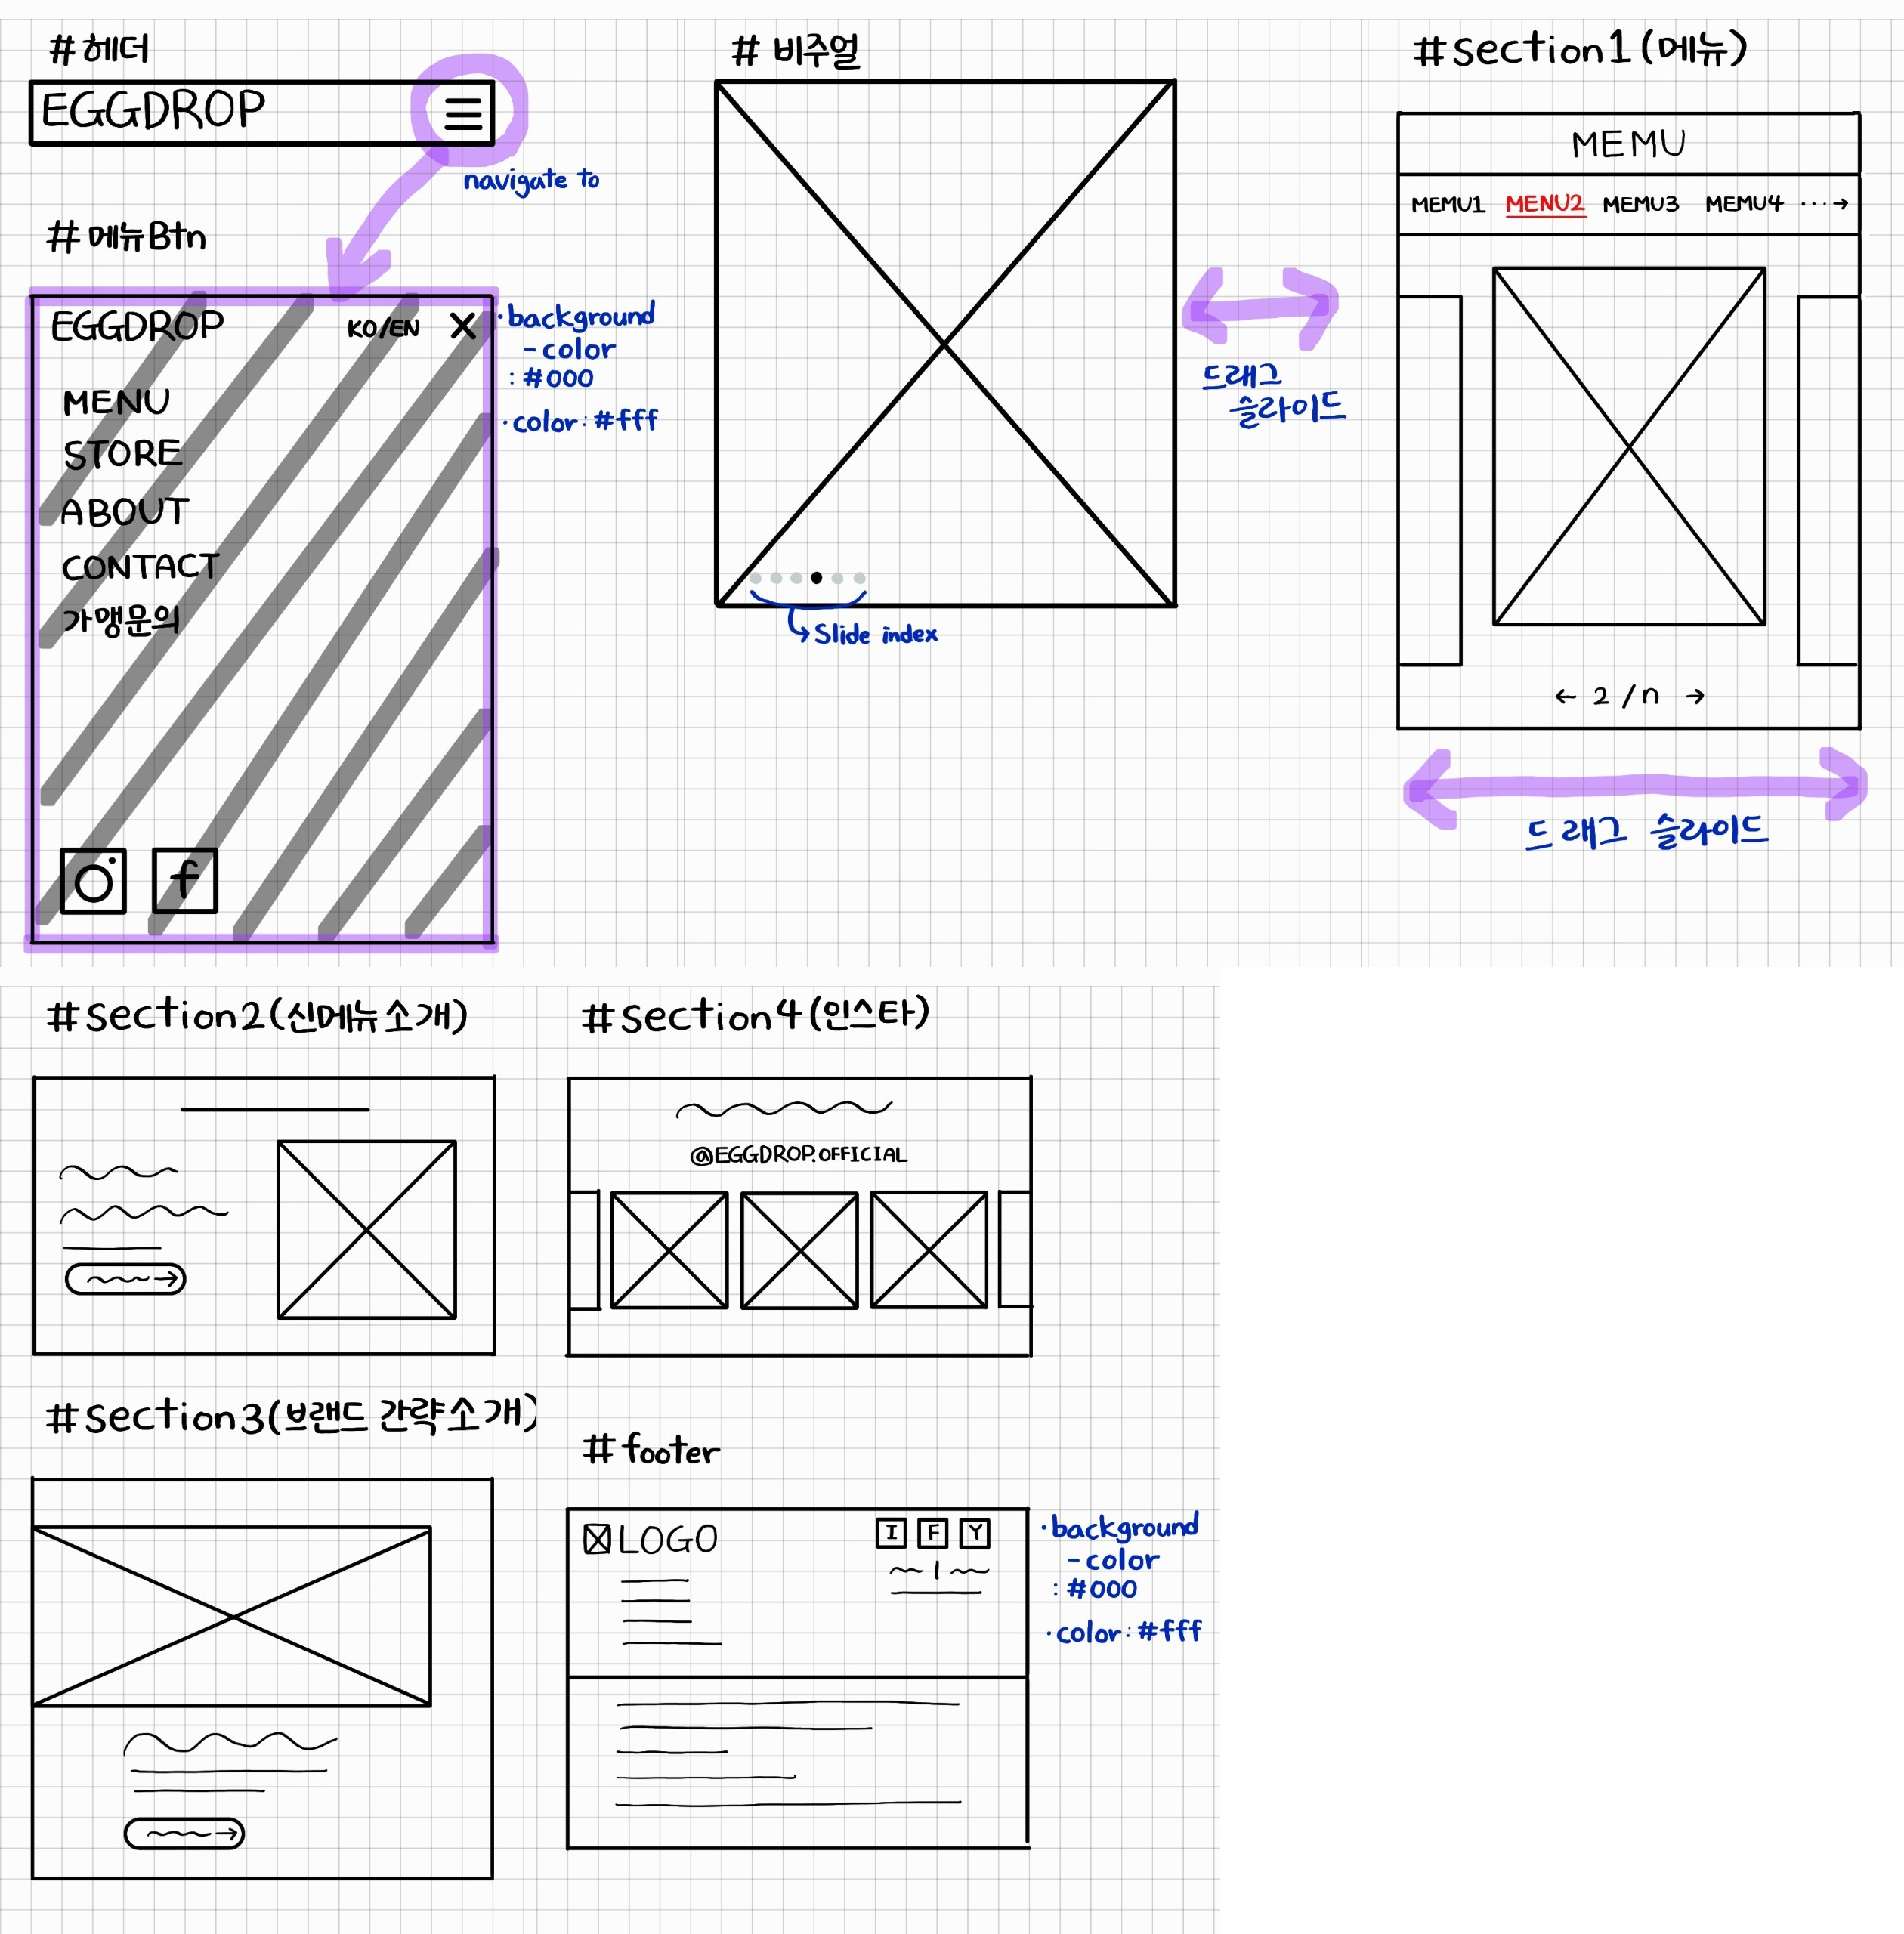 #헤더
EGGDROP
navigate to
#메뉴Btn
EGGDROP KO/EN X
MENU
STORE
ABOUT
CONTACT
가맹문의
f
·background
-color
:#000
·color:#fff
# 비주얼
Slide index
드래그
슬라이드
#section1(메뉴)
MEMU
MEMU1 MENU2 MEMU3 MEMU4 ···→
← 2/n →
드래그 슬라이드
#section2(신메뉴소개)
#section4(인스타)
@EGGDROP.OFFICIAL
#section3(브랜드 간략소개)
#footer
LOGO I F Y
·background
-color
:#000
·color:#fff